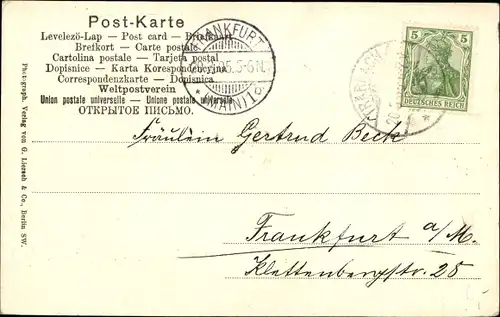 Post-Karte
Levelező-Lap — Post card — Briefkaart
Brefkort — Carte postale
Cartolina postale — Tarjeta postal
Dopisnice — Karta Korespondencyjna
Correspondenzkarte — Dopisnica
Weltpostverein
Union postale universelle — Unione postale universelle
ОТКРЫТОЕ ПИСЬМО.
FRANKFURT
5-6N.
* (MAIN) 1
5 5
DEUTSCHES REICH
Photograph. Verlag von G. Liersch & Co., Berlin SW.
Fräulein Gertrud Beck
Frankfurt a/M.
Klettenbergstr. 25